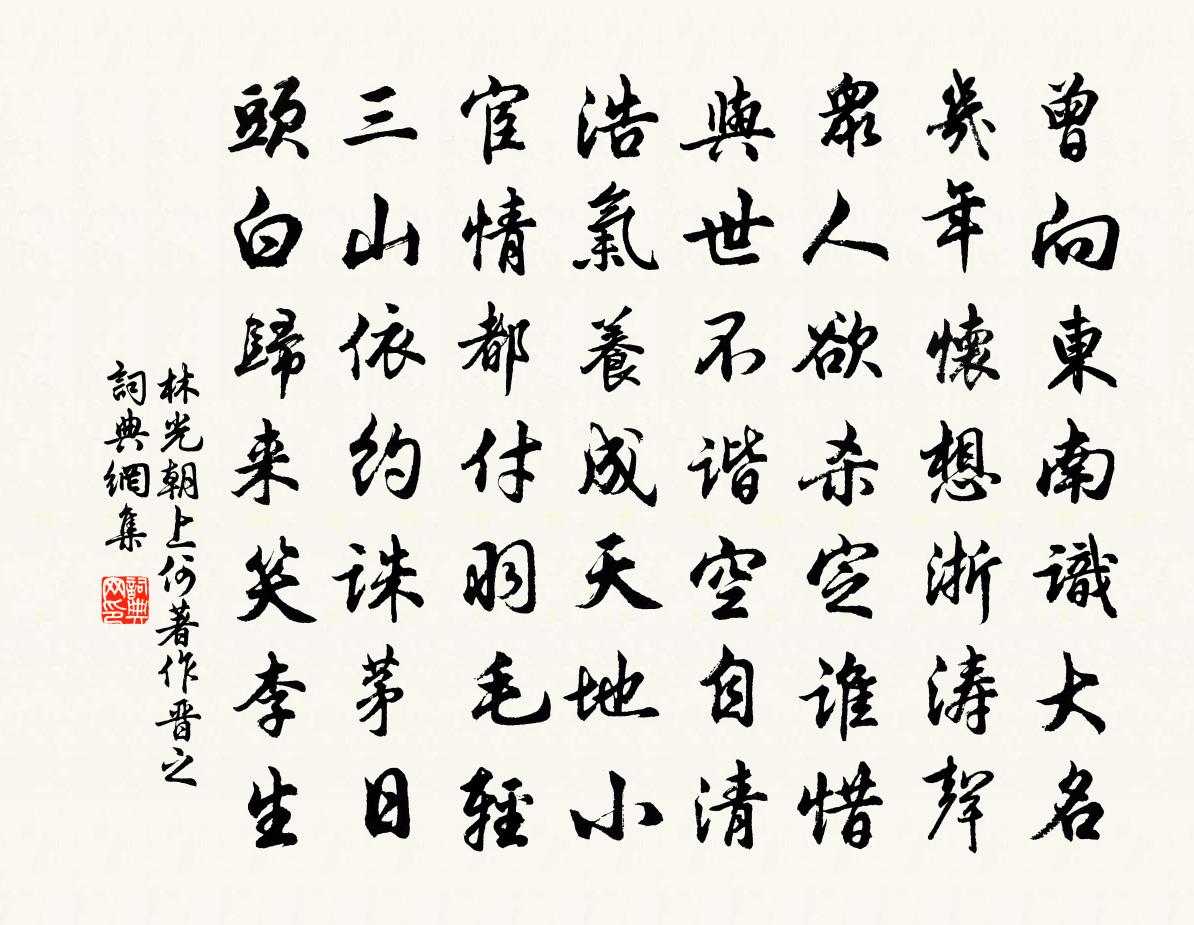 曾向東南識大名
幾年懷想浙濤聲
眾人欲杀定誰惜
與世不谐空自清
浩氣養成天地小
宦情都付羽毛輕
三山依約誅茅日
頭白歸来笑李生
林光朝上何著作晋之
詞典網集
詞典网印